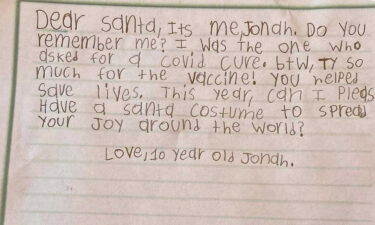 Dear Santa, Its me, Jonah. Do you
remember me? I was the one who
asked for a covid cure. btw, TY so
much for the vaccine! You helped
save lives. This year, can I pleas
Have a santa costume to spread
your joy around the world?
Love, 10 year old Jonah.